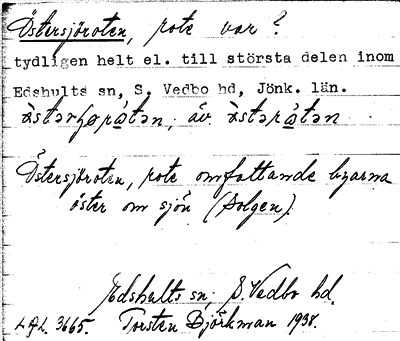 Östersjöroten, rote var?
tydligen helt el. till största delen inom
Edshults sn, S. Vedbo hd, Jönk. län.
äv.
Östersjöroten, rote omfattande byarna
öster om sjön (Solgen).
Edshults sn, S. Vedbo hd.
LAL. 3665. Torsten Björkman 1938.